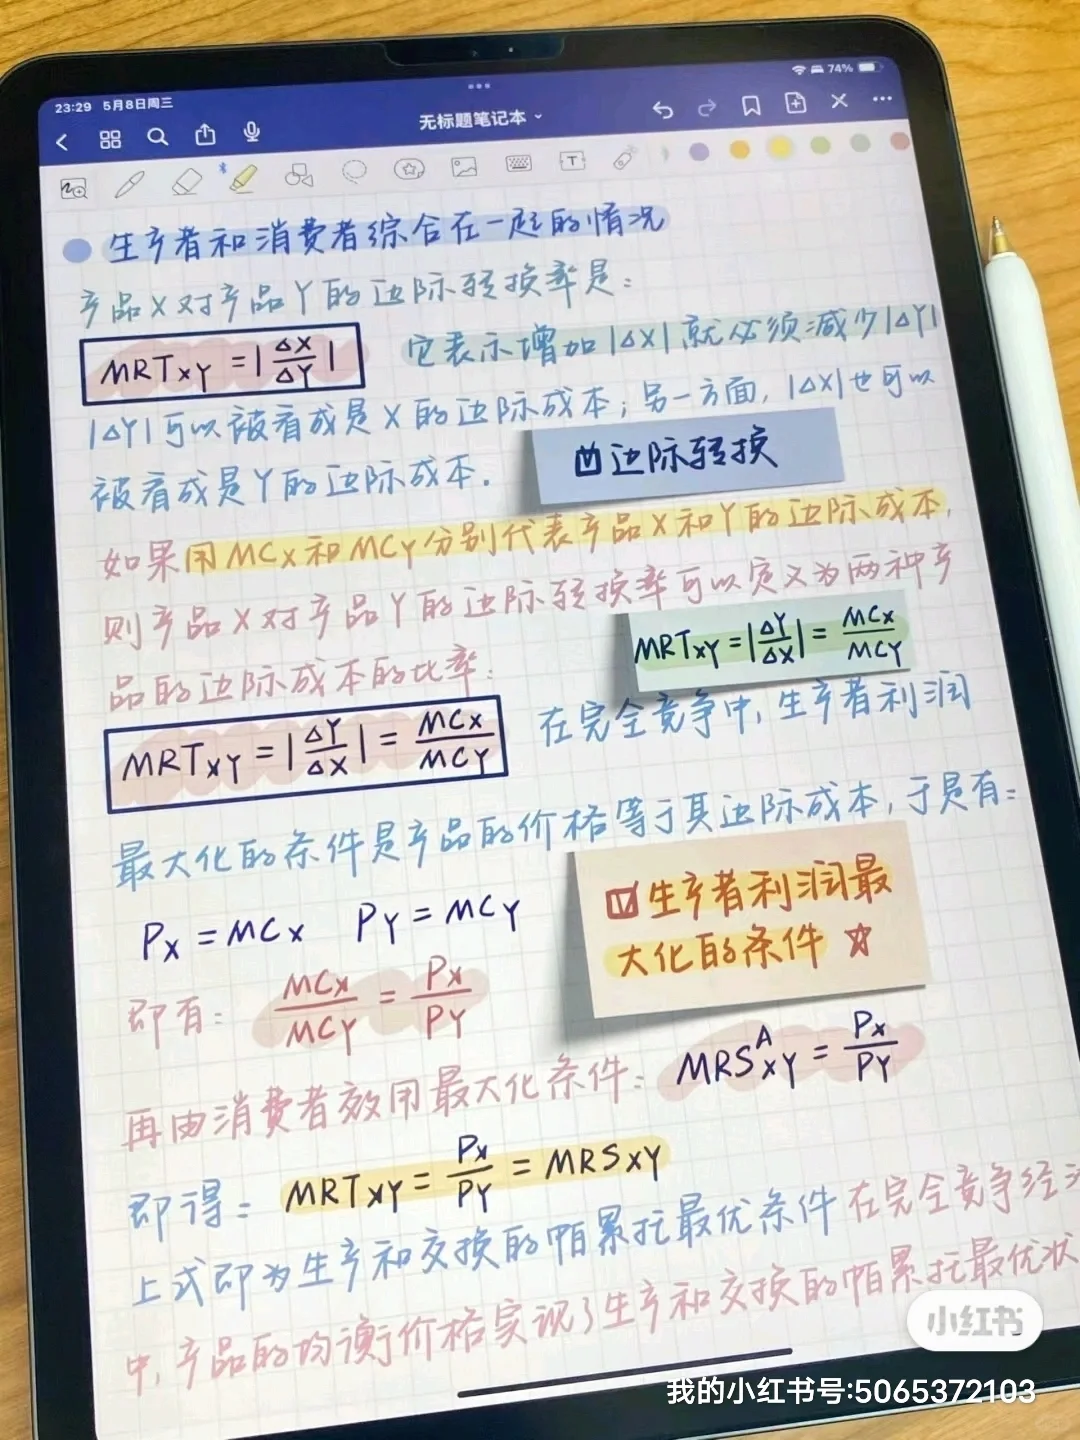 23:29 5月8日周三
74%
无标题笔记本
生产者和消费者综合在一起的情况
产品X对产品Y的边际转换率是:
MRTXY = |ΔX/ΔY|
它表示增加|ΔX|就必须减少|ΔY|
|ΔY|可以被看成是X的边际成本;另一方面,|ΔX|也可以
被看成是Y的边际成本.
凹边际转换
如果用MCX和MCY分别代表产品X和Y的边际成本,
则产品X对产品Y的边际转换率可以定义为两种产
品的边际成本的比率:
MRTXY = |ΔY/ΔX| = MCX/MCY
MRTXY = |ΔY/ΔX| = MCX/MCY
在完全竞争中,生产者利润
最大化的条件是产品的价格等于其边际成本,于是有:
生产者利润最
大化的条件
PX = MCX PY = MCY
即有: MCX/MCY = PX/PY
再由消费者效用最大化条件: MRS^A XY = PX/PY
即得: MRTXY = PX/PY = MRSXY
上式即为生产和交换的帕累托最优条件 在完全竞争经
中,产品的均衡价格实现了生产和交换的帕累托最优状
小红书
我的小红书号:5065372103